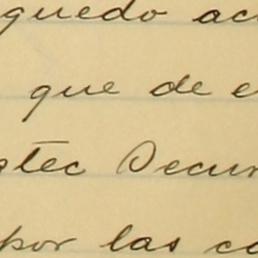 quedo ac
que de e
tec Decur
por las co